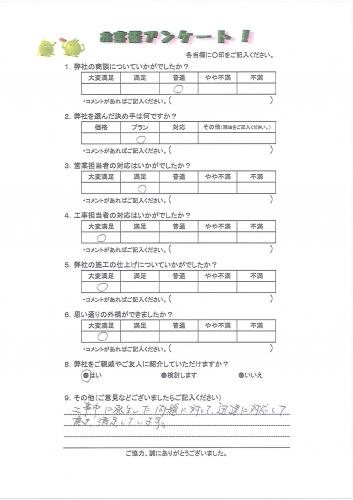 お客様アンケート！
各当欄に〇印をご記入ください。
1. 弊社の商談についていかがでしたか？
大変満足 満足 普通 やや不満 不満
・コメントがあればご記入ください。( )
2. 弊社を選んだ決め手は何ですか？
価格 プラン 対応 その他(理由をご記入ください。)
・コメントがあればご記入ください。( )
3. 営業担当者の対応はいかがでしたか？
大変満足 満足 普通 やや不満 不満
・コメントがあればご記入ください。( )
4. 工事担当者の対応はいかがでしたか？
大変満足 満足 普通 やや不満 不満
・コメントがあればご記入ください。( )
5. 弊社の施工の仕上げについていかがでしたか？
大変満足 満足 普通 やや不満 不満
・コメントがあればご記入ください。( )
6. 思い通りの外構ができましたか？
大変満足 満足 普通 やや不満 不満
・コメントがあればご記入ください。( )
8. 弊社をご親戚やご友人に紹介していただけますか？
●はい ●検討します ●いいえ
9. その他(ご意見などございましたらご記入ください。)
工事中に発生した問題に対して、迅速に対応して
満足しています。
ご協力、誠にありがとうございました。